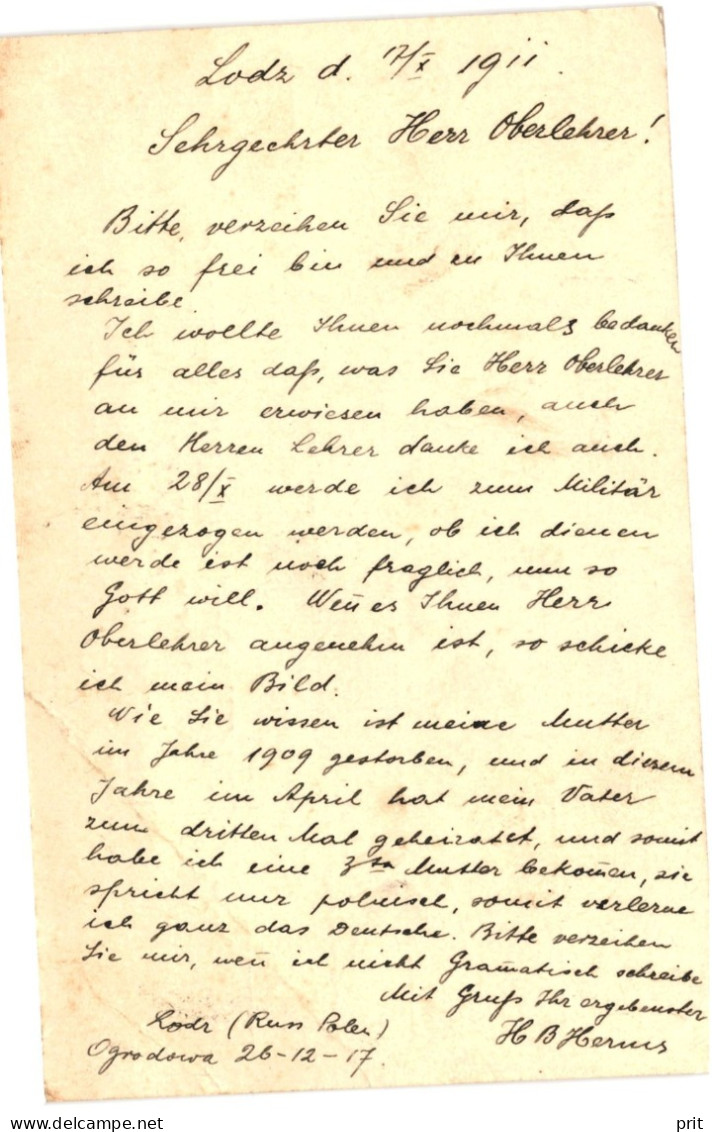 Lodz d. 7/X 1911.
Sehrgeehrter Herr Oberlehrer!
Bitte, verzeihen Sie mir, daß
ich so frei bin und en Ihnen
schreibe
Ich wollte Ihnen nochmals bedanken
für alles daß, was Sie Herr Oberlehrer
an mir erwiesen haben, auch
den Herren Lehrer danke ich auch.
Am 28/X werde ich zum Militär
eingezogen werden, ob ich dienen
werde ist noch fraglich, nun so
Gott will. Wen̄ es Ihnen Herr
Oberlehrer angenehm ist, so schicke
ich mein Bild.
Wie Sie wissen ist meine Mutter
im Jahre 1909 gestorben, und in diesem
Jahre im April hat mein Vater
zum dritten Mal geheiratet, und somit
habe ich eine 3te Mutter bekom̄en, sie
spricht nur polnisch, somit verlerne
ich ganz das Deutsche. Bitte verzeihen
Sie mir, wen̄ ich nicht Gram̄atisch schreibe
Mit Gruß Ihr ergebenster
Lodz (Russ Polen)
H B Herms
Ogrodowa 26-12-17.
prit